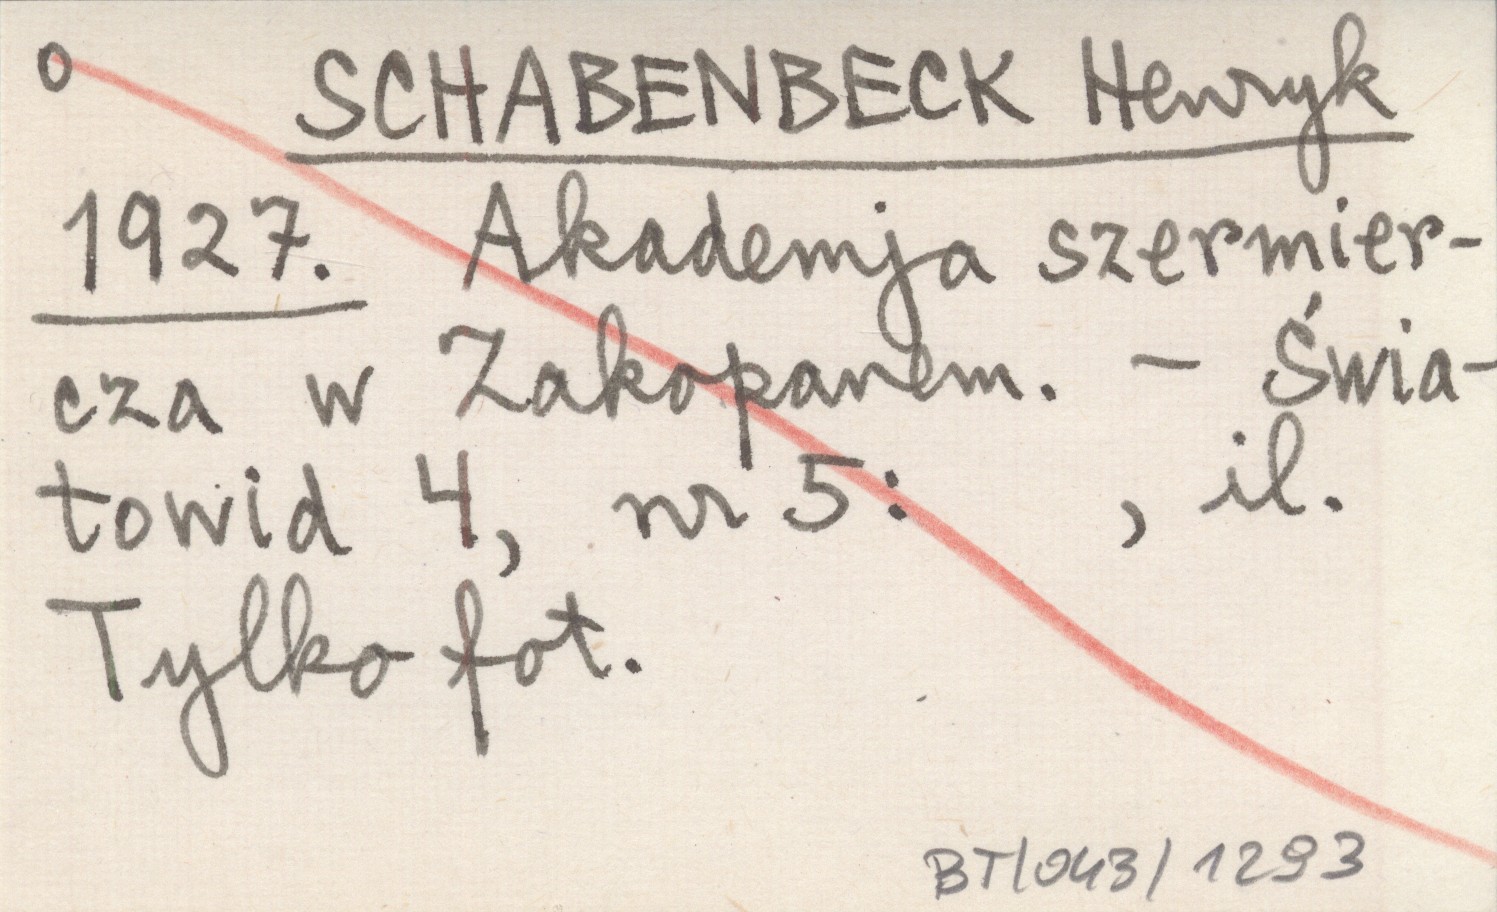 o SCHABENBECK Henryk
1927. Akademja szermier-
cza w Zakopanem. - Świa-
towid 4, nr 5: , il.
Tylko fot.
BT/043/1293